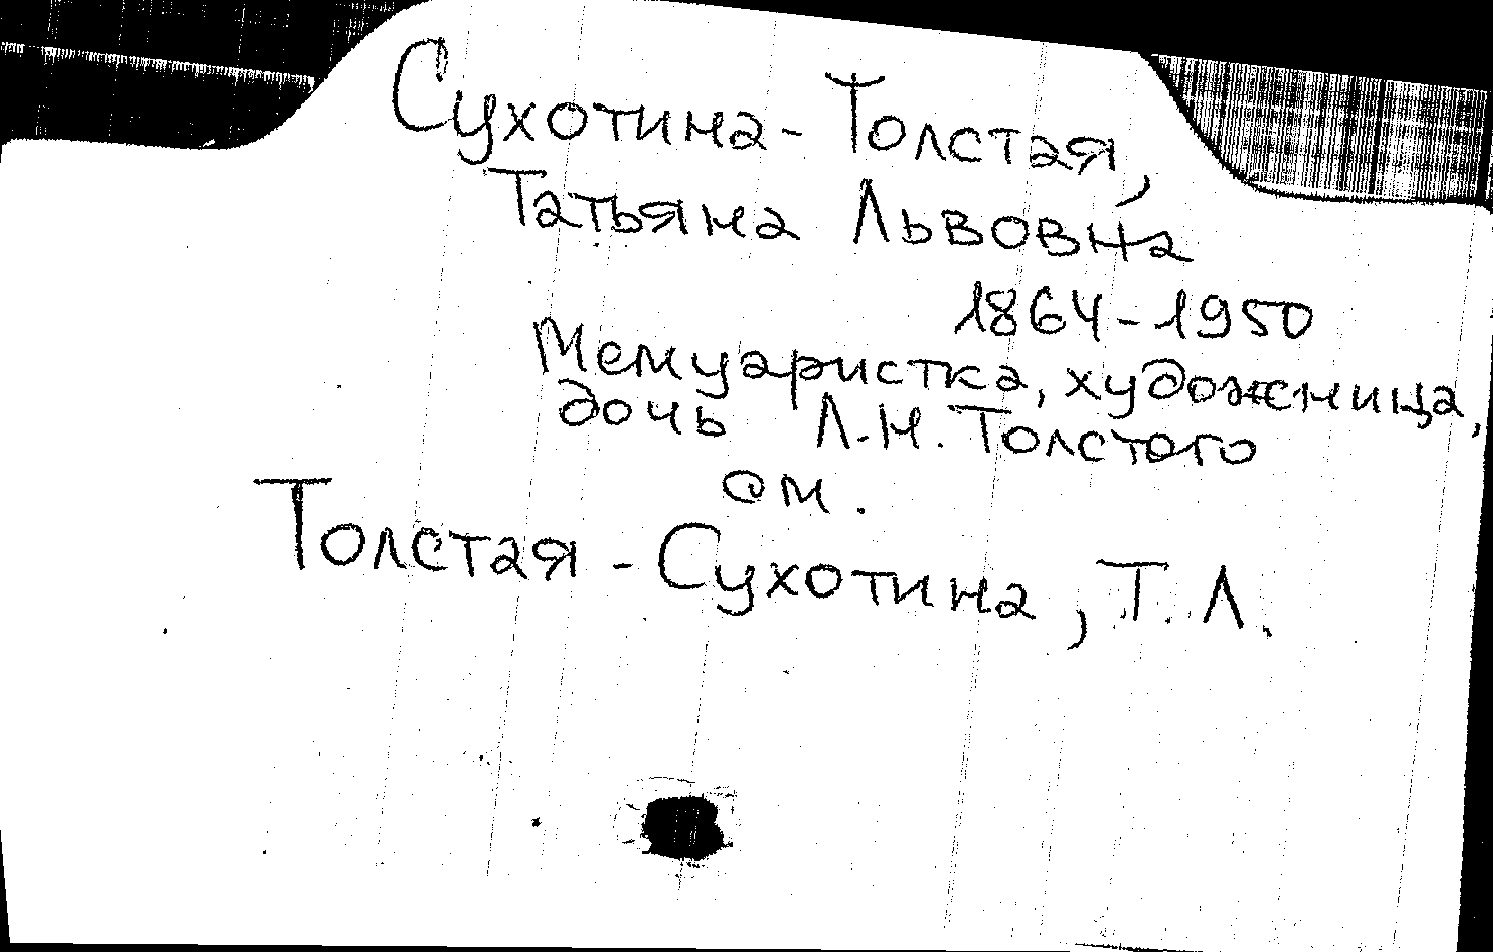 Сухотина-Толстая,
Татьяна Львовна
1864-1950
Мемуаристка, художница,
дочь Л.Н. Толстого
см.
Толстая-Сухотина, Т. Л.